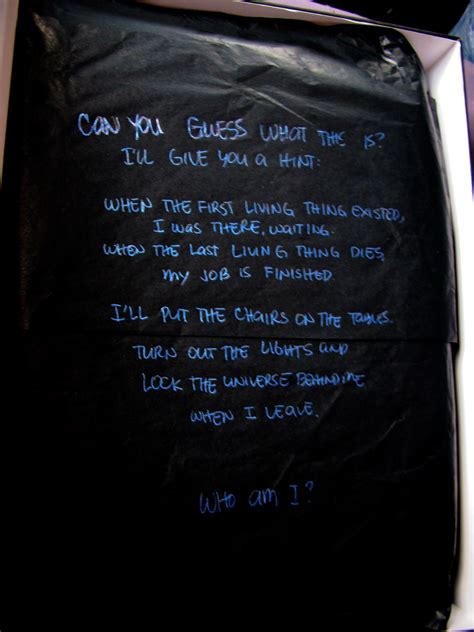 CAN YOU GUESS WHAT THIS IS?
I'LL GIVE YOU A HINT:
WHEN THE FIRST LIVING THING EXISTED,
I WAS THERE, WAITING.
WHEN THE LAST LIVING THING DIES,
MY JOB IS FINISHED.
I'LL PUT THE CHAIRS ON THE TABLES.
TURN OUT THE LIGHTS AND
LOCK THE UNIVERSE BEHIND ME
WHEN I LEAVE.
WHO AM I?